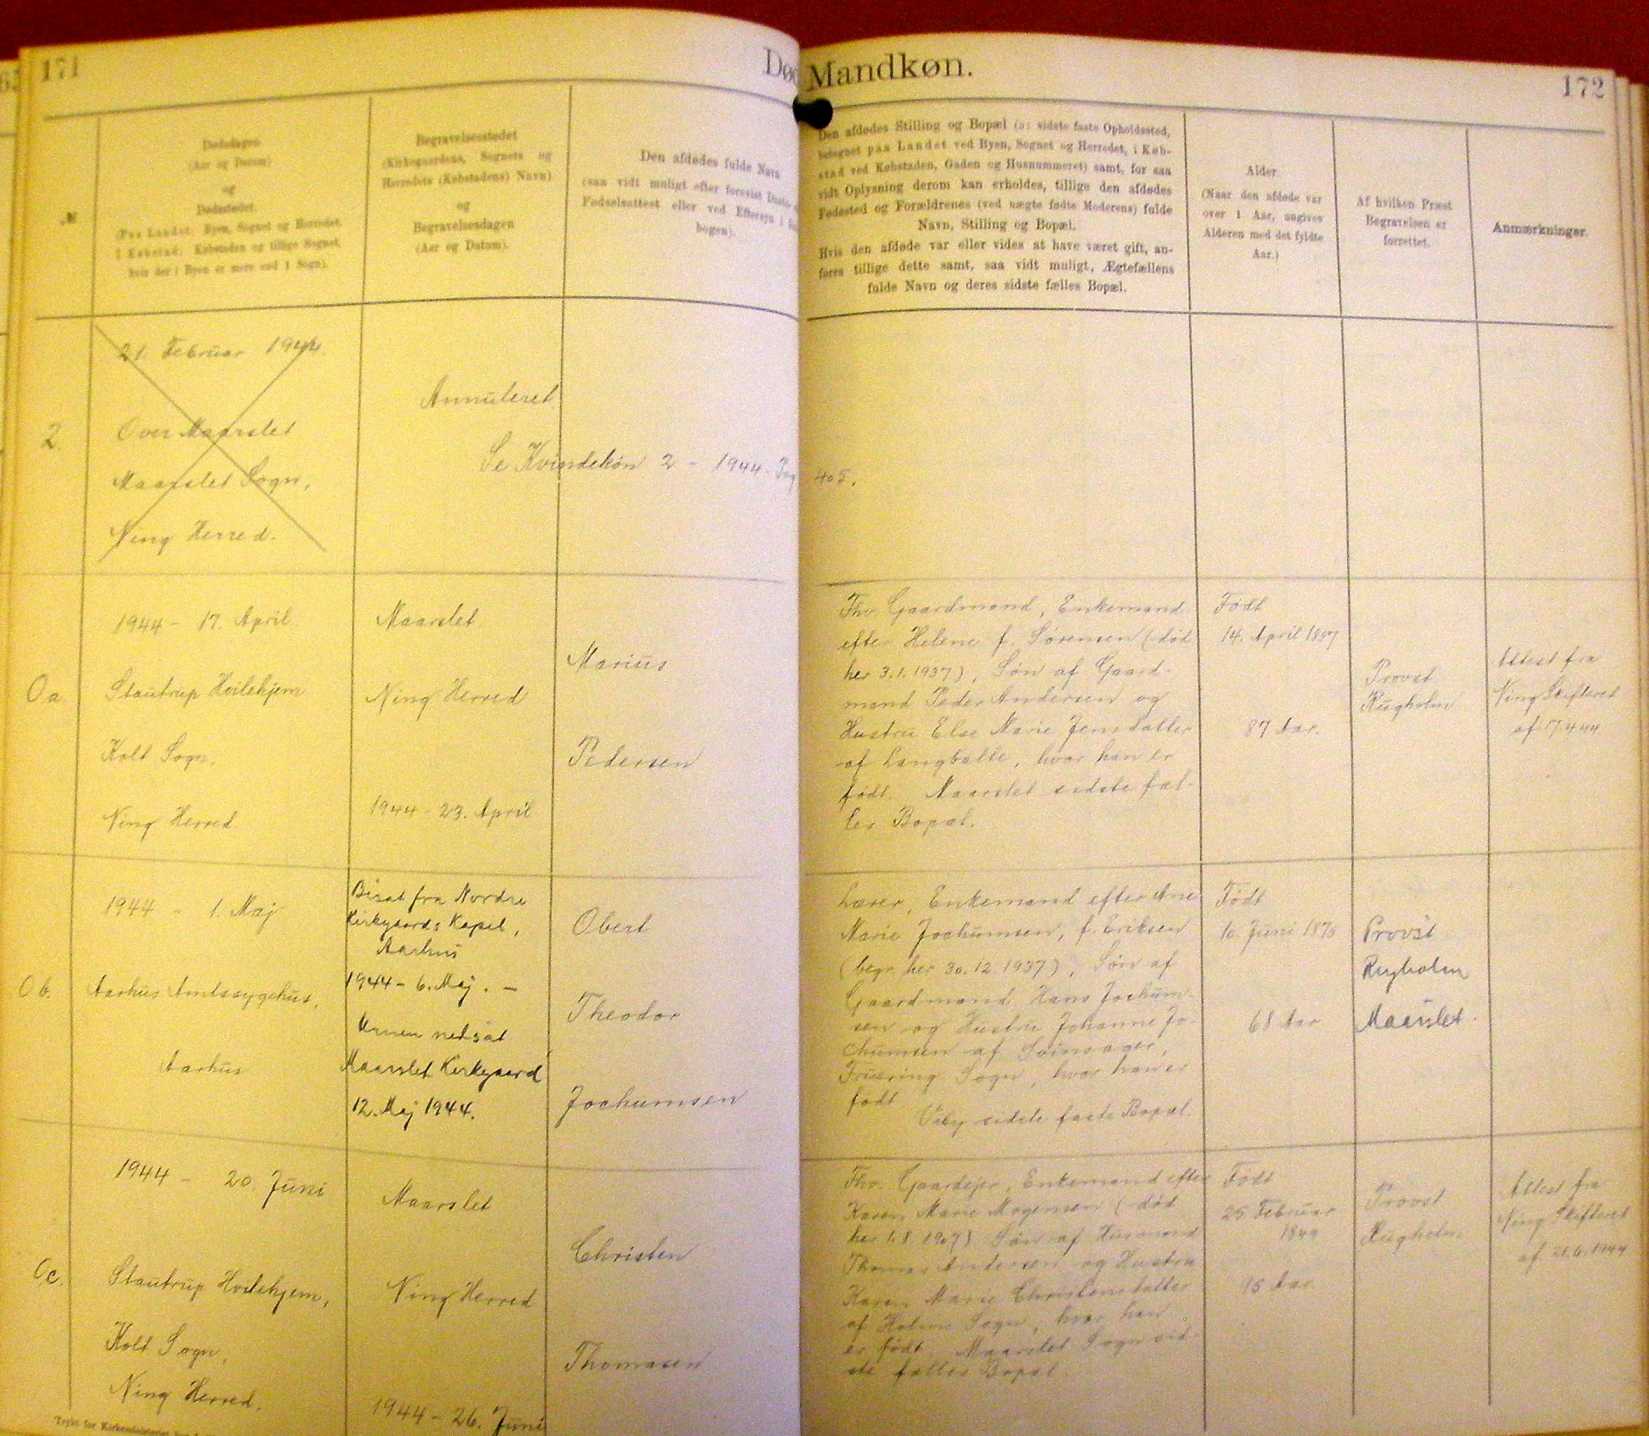 171
Død
Mandkøn.
172
№
Dødsdagen
(Aar og Datum)
og
Dødsstedet.
(Paa Landet: Byen, Sognet og Herredet,
i Købstad: Købstaden og tillige Sognet,
hvis der i Byen er mere end 1 Sogn).
Begravelsesstedet
(Kirkegaardens, Sognets og
Herredets (Købstadens) Navn)
og
Begravelsesdagen
(Aar og Datum).
Den afdødes fulde Navn
(saa vidt muligt efter forevist
Fødselsattest eller ved Eftersyn i
bogen).
Den afdødes Stilling og Bopæl (ɔ: sidste faste Opholdssted,
betegnet paa Landet ved Byen, Sognet og Herredet, i Køb-
stad ved Købstaden, Gaden og Husnummeret) samt, for saa
vidt Oplysning derom kan erholdes, tillige den afdødes
Fødested og Forældrenes (ved uægte fødte Moderens) fulde
Navn, Stilling og Bopæl.
Hvis den afdøde var eller vides at have været gift, an-
føres tillige dette samt, saa vidt muligt, Ægtefællens
fulde Navn og deres sidste fælles Bopæl.
Alder.
(Naar den afdøde var
over 1 Aar, angives
Alderen med det fyldte
Aar.)
Af hvilken Præst
Begravelsen er
forrettet.
Anmærkninger.
2
21. Februar 1944.
Over Maarslet
Maarslet Sogn,
Ning Herred.
Annuleret
Se Kvindekøn 2 - 1944. Pag
405.
0a
1944 - 17. April.
Stautrup Hvilehjem
Kolt Sogn,
Ning Herred.
Maarslet
Ning Herred
1944 - 23. April
Marius
Pedersen
Fhv. Gaardmand, Enkemand
efter Helene f. Sørensen (død
her 3.1.1937), Søn af Gaard-
mand Peder Andersen og
Hustru Else Marie Jensdatter
af Langballe, hvor han er
født. Maarslet sidste fæl-
les Bopæl.
Født
14. April 1857
87 Aar.
Provst
Rugholm
Attest fra
Ning Skifteret
af 17.4.44
0b.
1944 - 1. Maj
Aarhus Amtssygehus,
Aarhus
Bisat fra Nordre
Kirkegaards Kapel,
Aarhus
1944 - 6. Maj. -
Urnen nedsat
Maarslet Kirkegaard
12. Maj 1944.
Obert
Theodor
Jochumsen
Lærer, Enkemand efter Ane
Marie Jochumsen, f. Eriksen
(begr. her 30.12.1937), Søn af
Gaardmand Hans Jochum-
sen og Hustru Johanne Jo-
chumsen af
Fruering Sogn, hvor han er
født
Viby sidste faste Bopæl.
Født
16. Juni 1875
68 Aar
Provst
Rugholm
Maarslet.
0c.
1944 - 20. Juni
Stautrup Hvilehjem,
Kolt Sogn,
Ning Herred.
Maarslet
Ning Herred
1944 - 26. Juni
Christen
Thomasen
Fhv. Gaardejer, Enkemand efter
Karen Marie Mogensen (død
her 1.8.1907) Søn af Husmand
Thomas Andersen og Hustru
Karen Marie Christensdatter
af Holme Sogn, hvor han
er født. Maarslet Sogn sid-
ste fælles Bopæl.
Født
25 Februar
1849
95 Aar
Provst
Rugholm
Attest fra
Ning Skifteret
af 21.6.1944